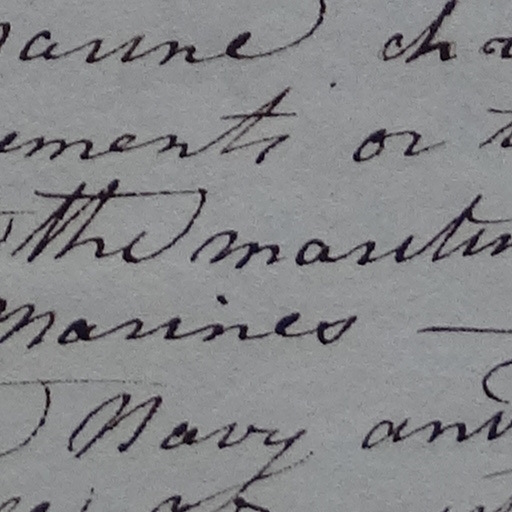 marine cha
ements or t
the maritim
marines —
Navy and